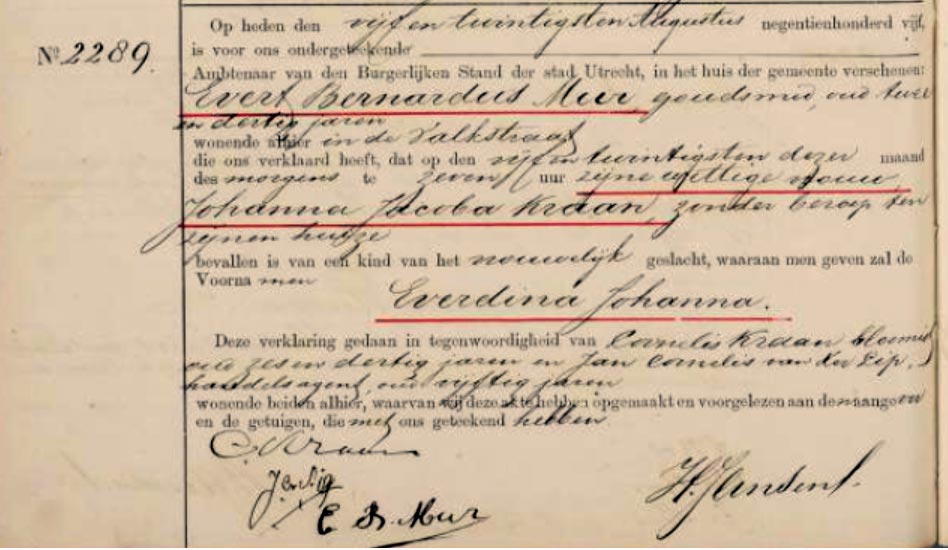 Op heden den vijf en twintigsten Augustus negentienhonderd vijf,
No 2289. is voor ons ondergeteekende
Ambtenaar van den Burgerlijken Stand der stad Utrecht, in het huis der gemeente verschenen:
Evert Bernardus Mur, goudsmid, oud twee
en dertig jaren
wonende alhier in de Valkstraat
die ons verklaard heeft, dat op den vijf en twintigsten dezer maand
des morgens te zeven uur zijne wettige vrouw
Johanna Jacoba Kraan, zonder beroep ten
zijnen huize
bevallen is van een kind van het vrouwelijk geslacht, waaraan men geven zal de
Voorna men
Everdina Johanna.
Deze verklaring gedaan in tegenwoordigheid van Cornelis Kraan bloemist
oud zes en dertig jaren en Jan Cornelis van
handelsagent, oud vijftig jaren
wonende beiden alhier, waarvan wij deze akte hebben opgemaakt en voorgelezen aan de naangever
en de getuigen, die met ons geteekend hebben
C. Kraan
E B. Mur